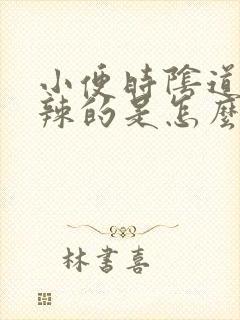 小便時陰道
辣的是怎麼
林書喜